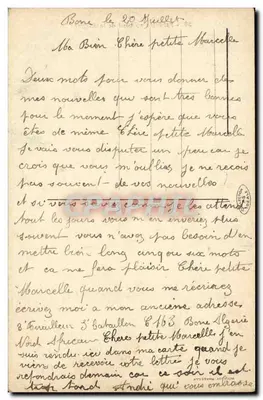 Bone le 20 Juillet
Ma Bien Chère petite Marcelle
Deux mots pour vous donner de
mes nouvelles que sont très bonnes
pour le moment j'espère que vous
êtes de même Chère petite Marcelle
Je vais vous disputer un peu car je
crois que vous m'oubliez je ne reçois
pas souvent de vos nouvelles
et si vous
tout les jours vous m'en enveriez plus
souvent vous n'avez pas besoin d'en
mettre lion long cinq ou six mots
et ca me fera plaisir Chère petite
Marcelle quand vous me récrivez
écrivez moi a mon ancienne adresse
3e Bataillon Bone Algérie
Chere petite Marcelle j'en
dans ma carte quand je
vien de recevoire votre lettre je vous
repondrais demain car ce soir il est
trop tard André qui vous embrasse